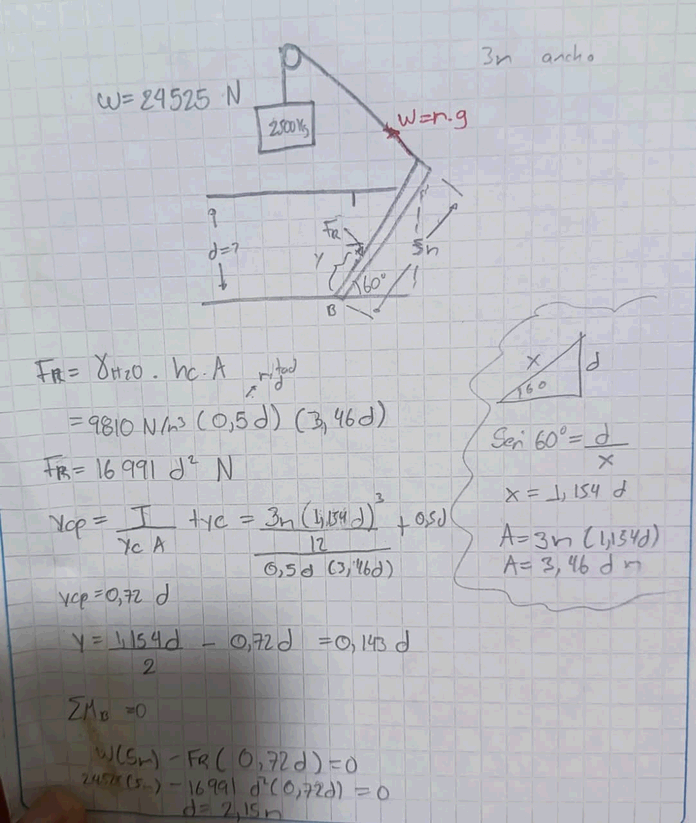 3m ancho
W=24525 N
2500 Kg
W=m.g
q
d=?
FR
Y
5m
60°
B
FR = γH2O . hc . A
mitad
= 9810 N/m³ (0,5d) (3,46d)
FR = 16 991 d² N
Ycp = I / Yc A + yc = 3m (1,154d)³ / 12 / 0,5d (3,46d) + 0,5d
Ycp = 0,72 d
Y = 1,154d / 2 - 0,72d = 0,143 d
ΣMB = 0
W(5m) - FR ( 0,72d) = 0
24525(5m) - 16991 d² (0,72d) = 0
d = 2,15m
x
d
60
Sen 60° = d / x
x = 1,154 d
A = 3m (1,154d)
A = 3,46 d m